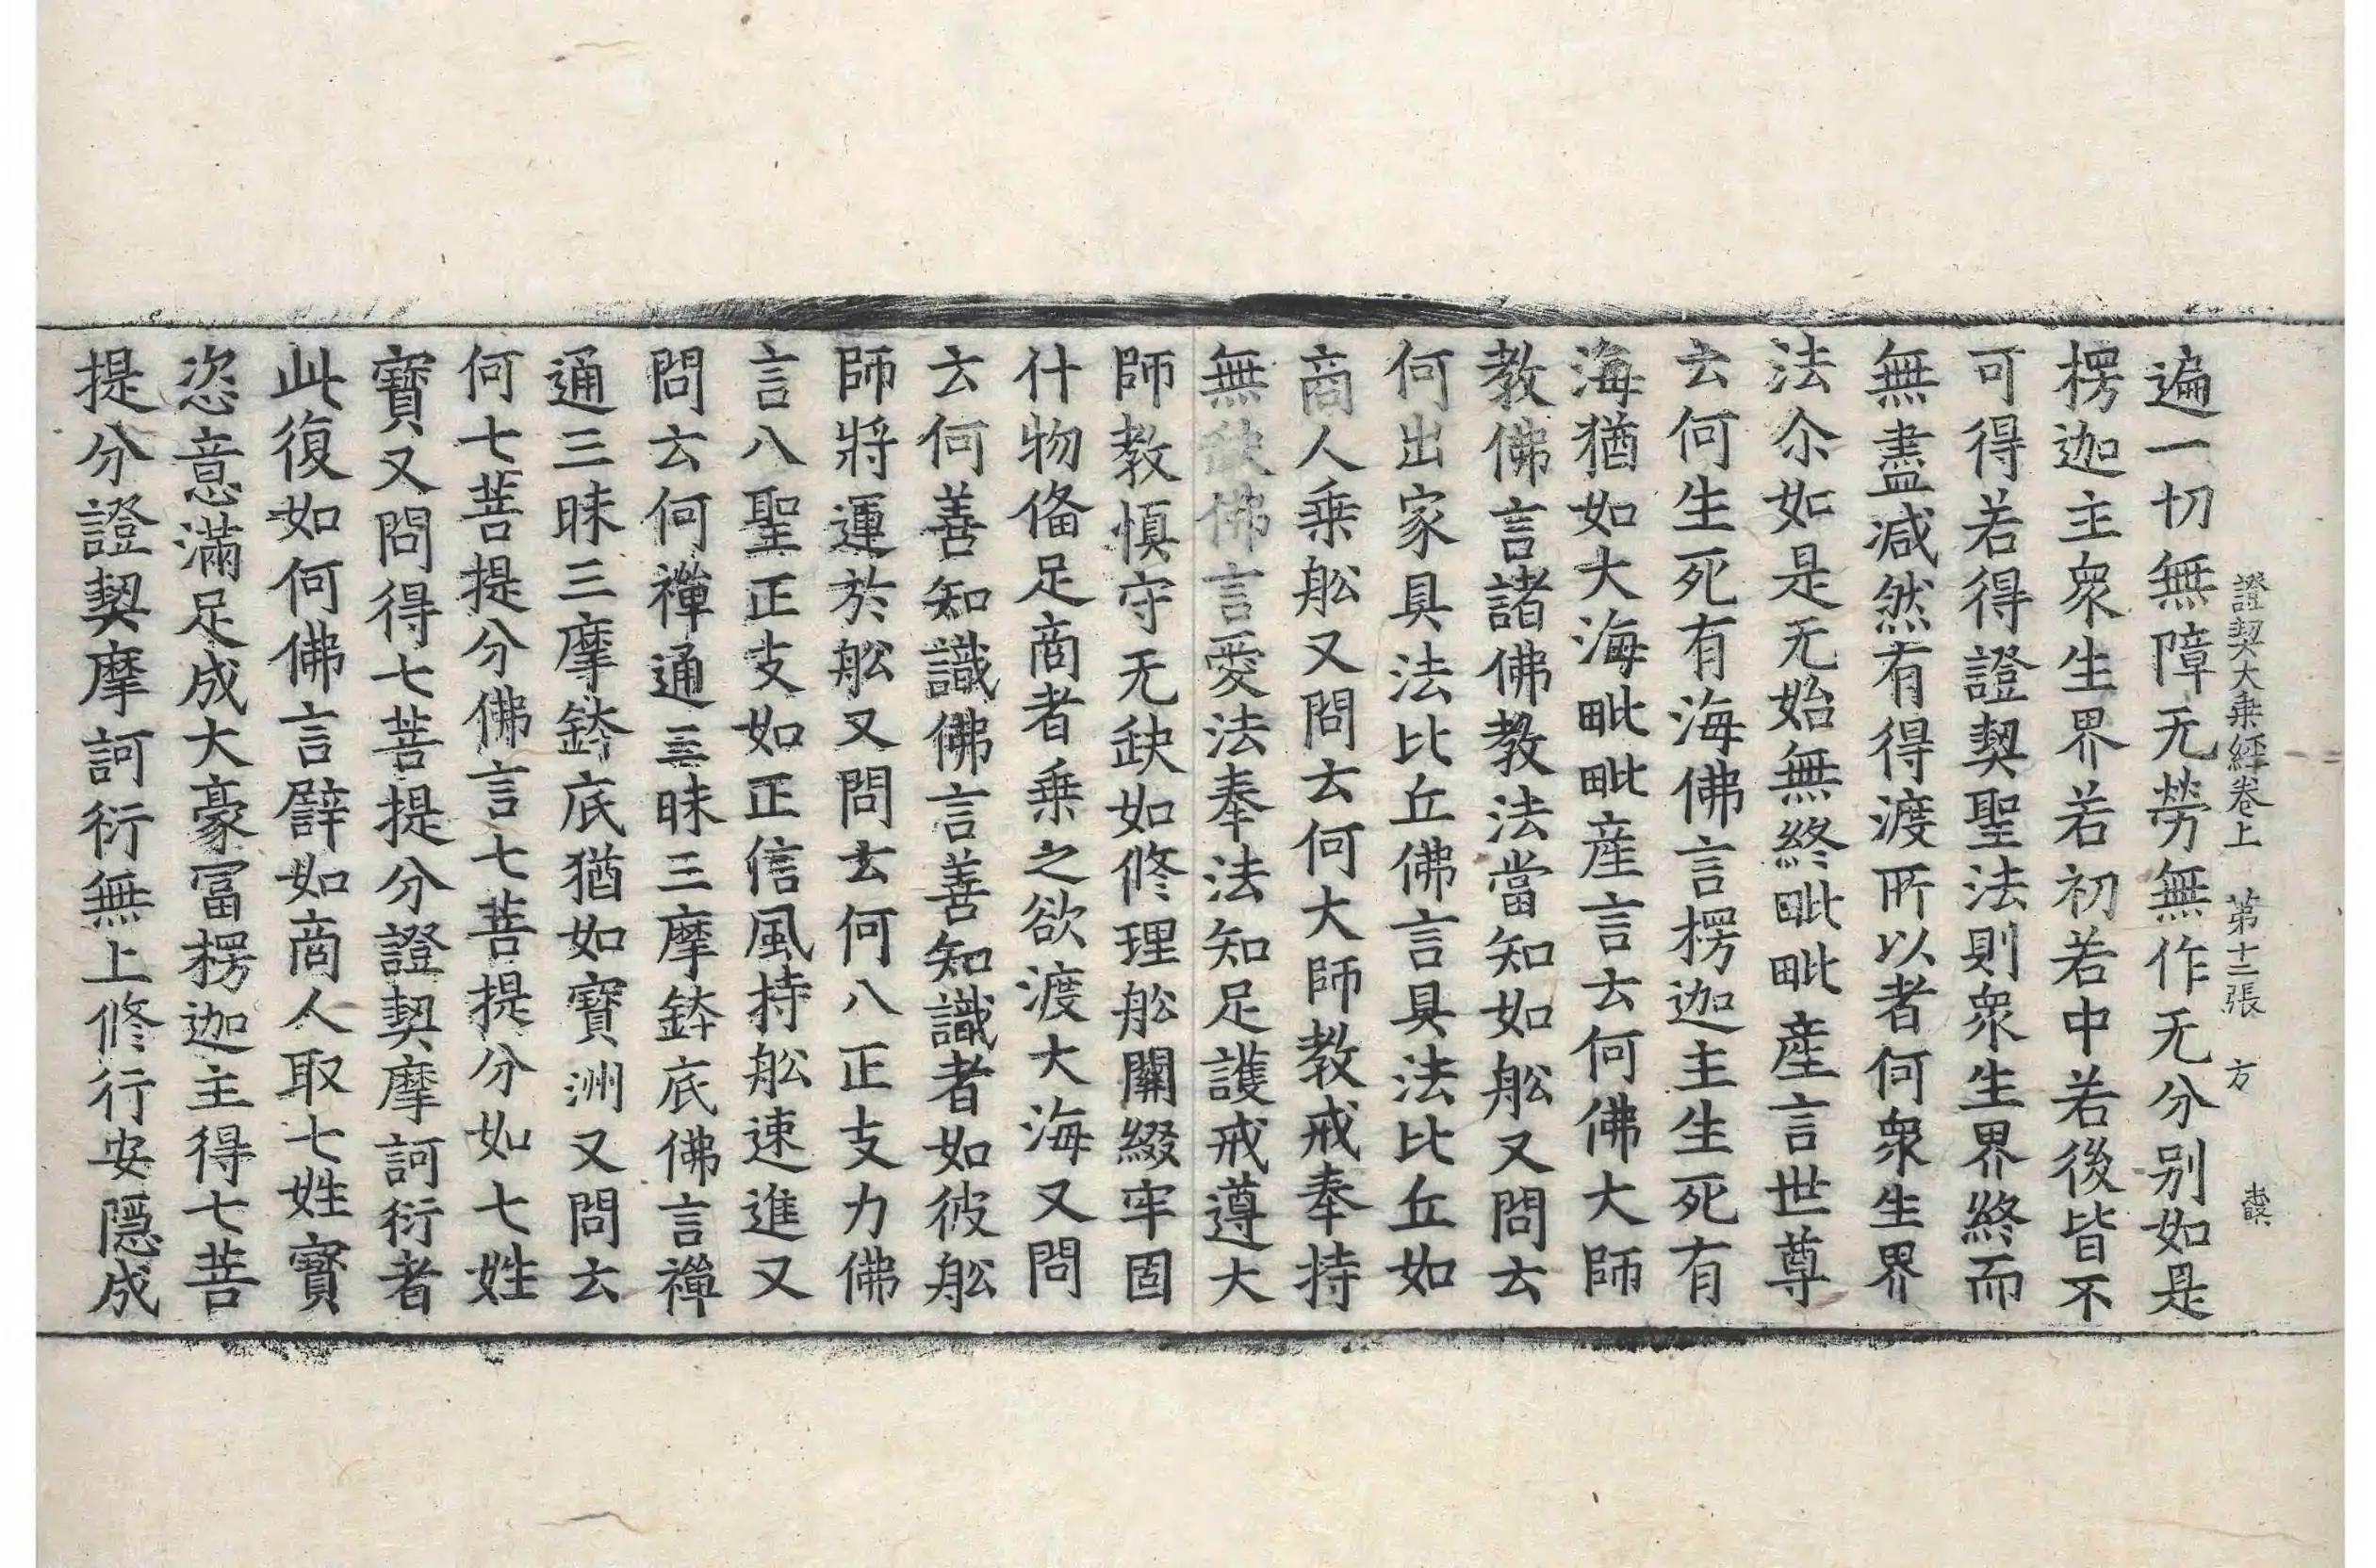 證契大乗經卷上 第十二張 方
遍一切無障无勞無作无分别如是
楞迦主衆生界若初若中若後皆不
可得若得證契聖法則衆生界終而
無盡減然有得渡所以者何衆生界
法尒如是无始無終毗毗産言世尊
云何生死有海佛言楞迦主生死有
海猶如大海毗毗産言云何佛大師
教佛言諸佛教法當知如舩又問云
何出家具法比丘佛言具法比丘如
商人乗舩又問云何大師教戒奉持
無缺佛言愛法奉法知足護戒遵大
師教慎守无缺如修理舩關綴牢固
什物俻足商者乗之欲渡大海又問
云何善知識佛言善知識者如彼舩
師將運於舩又問云何八正支力佛
言八聖正支如正信風持舩速進又
問云何禪通三昧三摩鉢底佛言禪
通三昧三摩鉢底猶如寶洲又問云
何七菩提分佛言七菩提分如七姓
寶又問得七菩提分證契摩訶衍者
此復如何佛言譬如商人取七姓寶
恣意滿足成大豪冨楞迦主得七菩
提分證契摩訶衍無上修行安隱成